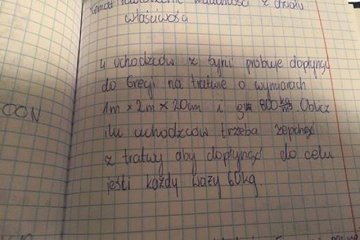 wiadomości z działu
właściwość
4 uchodźców z Syrii próbuje dopłynąć
do Grecji na tratwie o wymiarach
1m × 2m × 20cm i ρ= 800 Oblicz
ilu uchodźców trzeba zepchnąć
z tratwy aby dopłynąć do celu
jeśli każdy waży 60kg.
CON